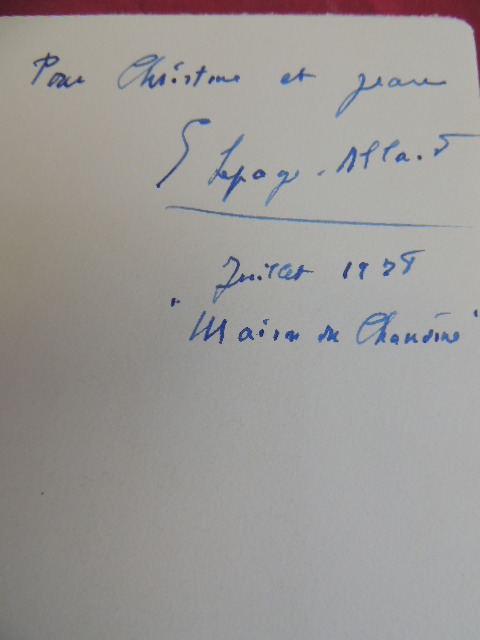 Pour Christine et Jean
Lepage-Allard
Juillet 1978
"Maison du